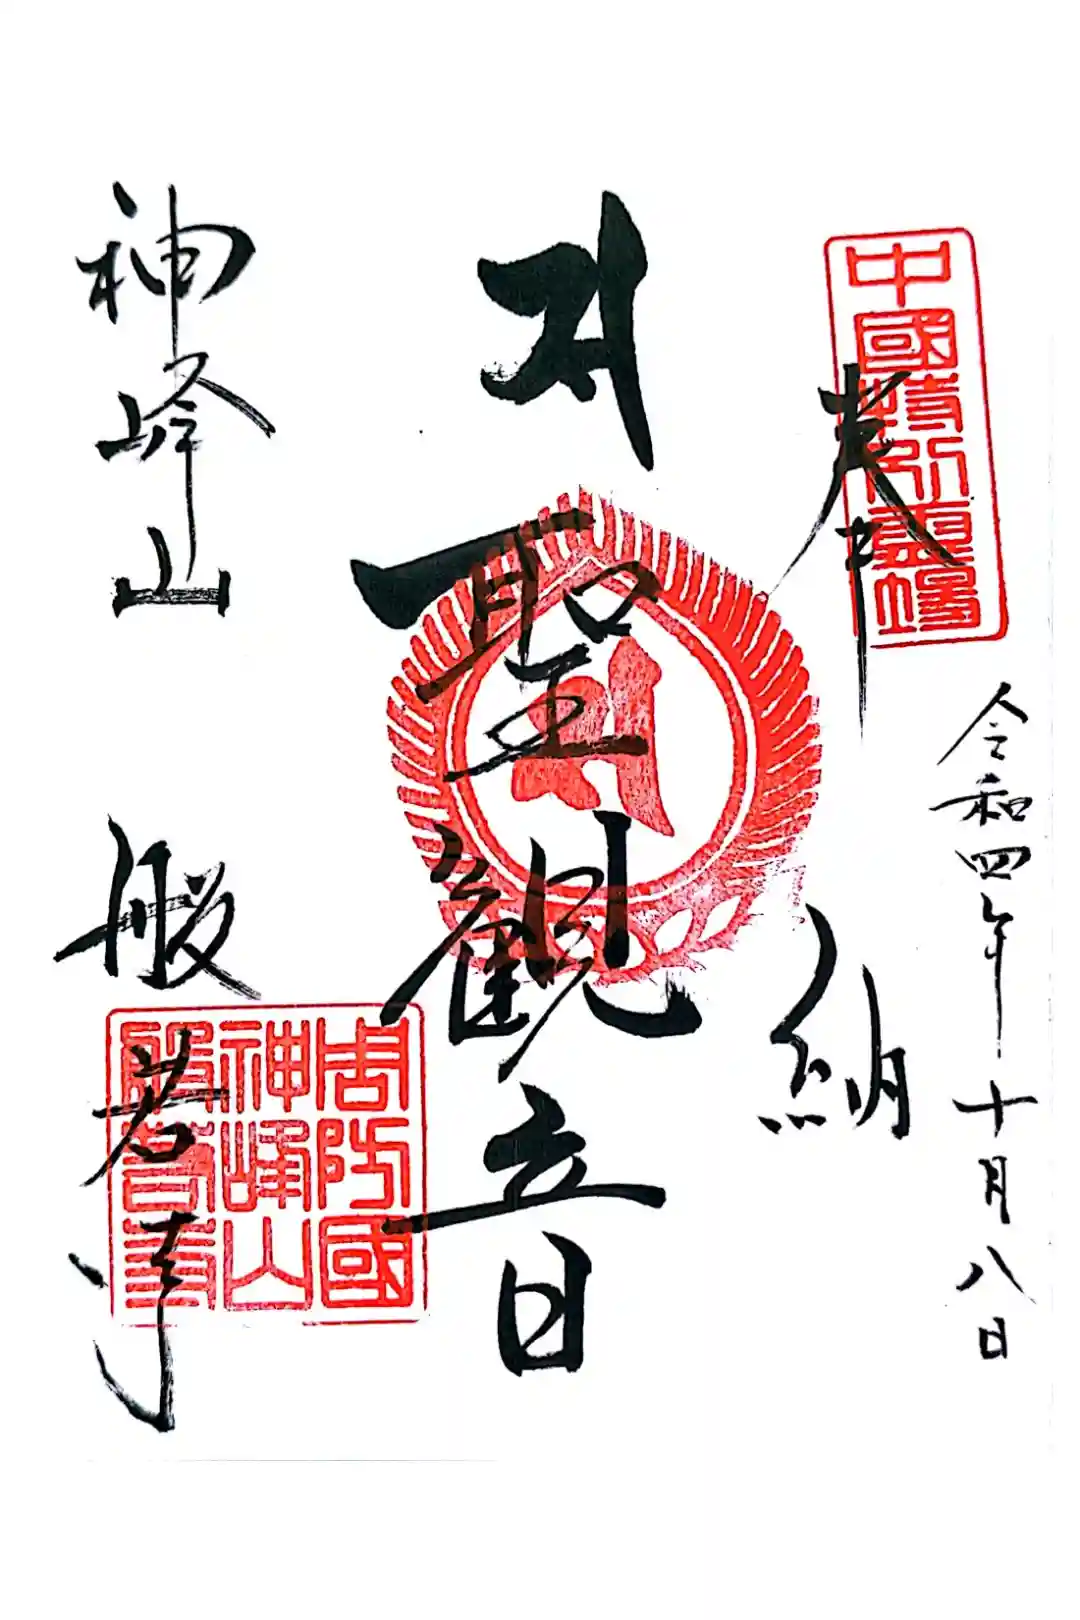 中國特別霊場
奉納
令和四年十月八日
聖觀音
神峰山
般若寺
周防國
神峰山
般若寺